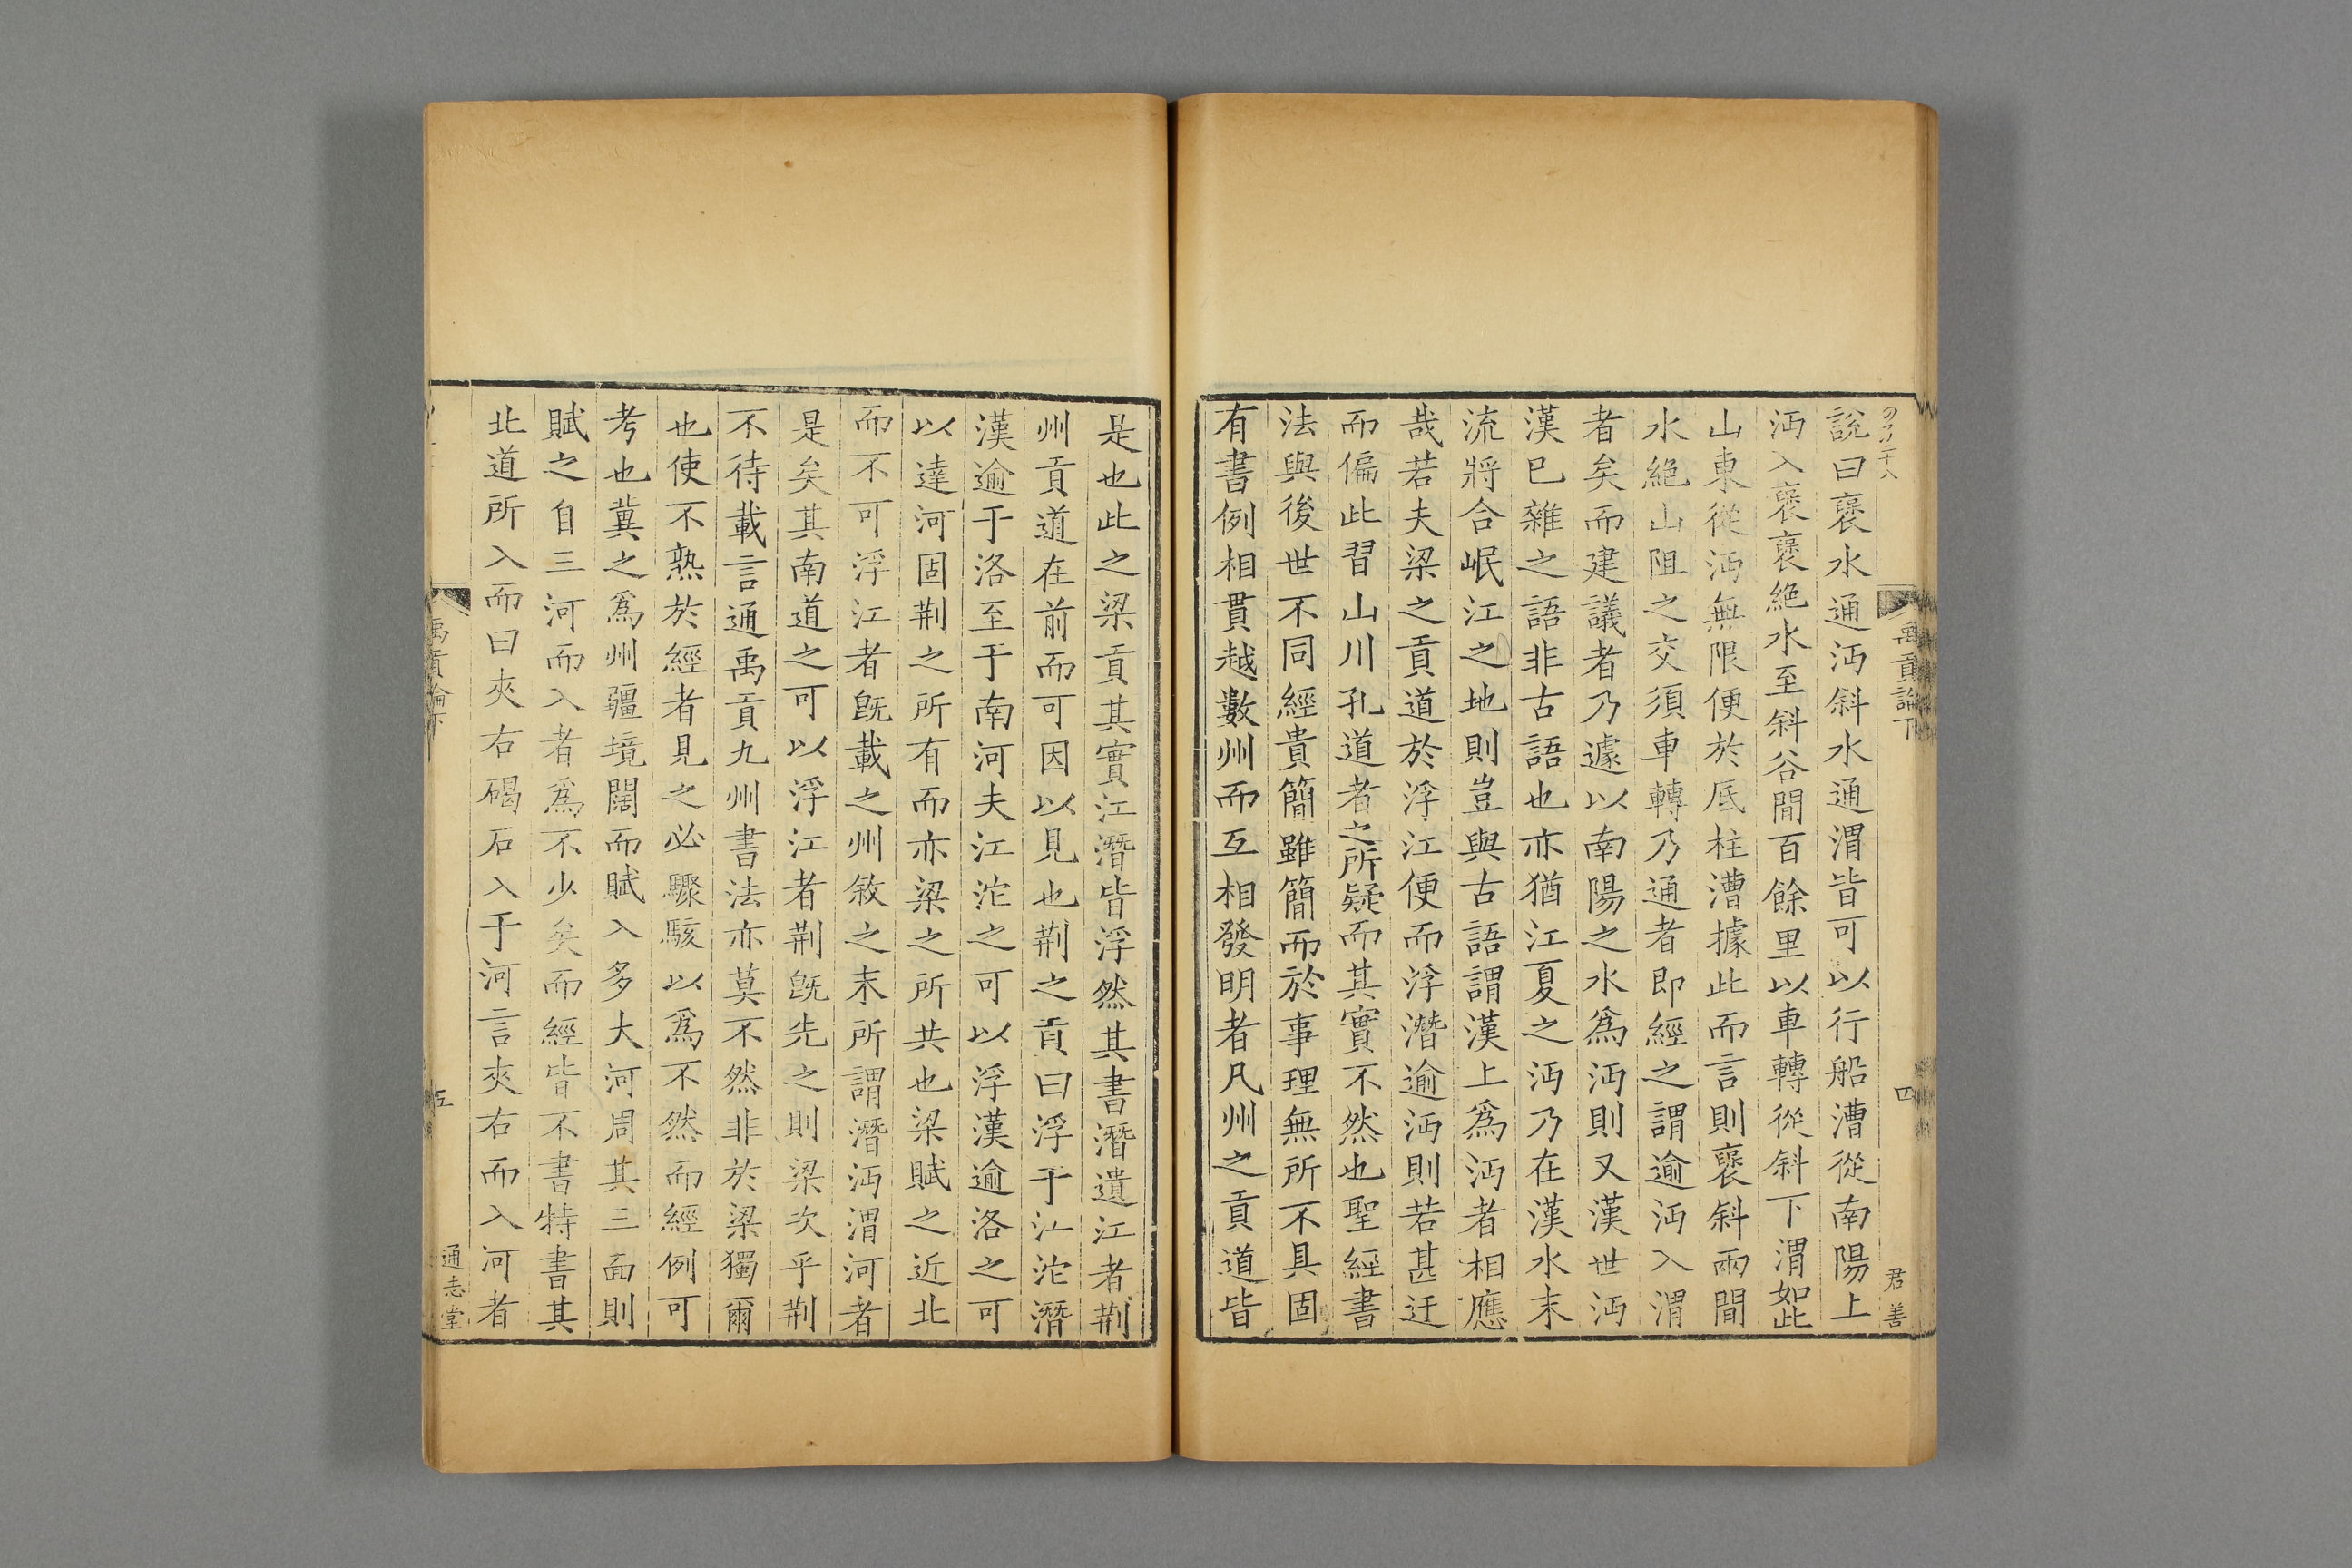 禹貢論下
四
君善
說曰襃水通沔斜水通渭皆可以行船漕從南陽上
沔入襃襃絕水至斜谷間百餘里以車轉從斜下渭如此
山東從沔無限便於厎柱漕據此而言則襃斜兩間
水絕山阻之交須車轉乃通者即經之謂逾沔入渭
者矣而建議者乃遽以南陽之水爲沔則又漢世沔
漢巳雜之語非古語也亦猶江夏之沔乃在漢水末
流將合岷江之地則豈與古語謂漢上爲沔者相應
哉若夫梁之貢道於浮江便而浮潛逾沔則若甚迂
而偏此習山川孔道者之所疑而其實不然也聖經書
法與後世不同經貴簡雖簡而於事理無所不具固
有書例相貫越數州而互相發明者凡州之貢道皆
是也此之梁貢其實江潛皆浮然其書潛遺江者荆
州貢道在前而可因以見也荆之貢曰浮于江沱潛
漢逾于洛至于南河夫江沱之可以浮漢逾洛之可
以達河固荆之所有而亦梁之所共也梁賦之近北
而不可浮江者旣載之州敘之末所謂潛沔渭河者
是矣其南道之可以浮江者荆旣先之則梁次乎荆
不待載言通禹貢九州書法亦莫不然非於梁獨爾
也使不熟於經者見之必驟駭以爲不然而經例可
考也冀之爲州疆境闊而賦入多大河周其三面則
賦之自三河而入者爲不少矣而經皆不書特書其
北道所入而曰夾右碣石入于河言夾右而入河者
禹貢論下
五
通志堂